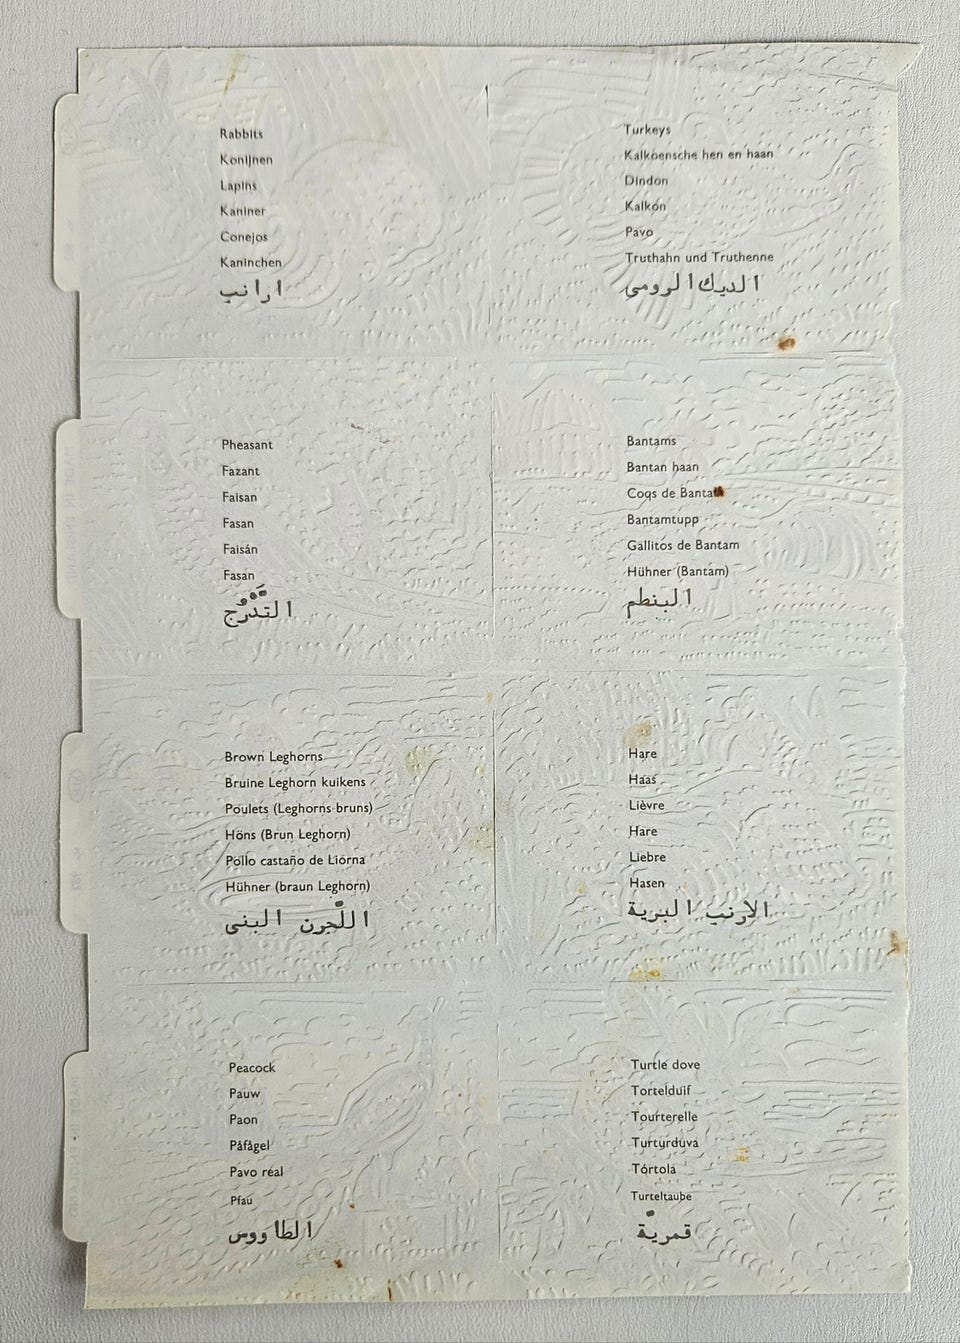 Rabbits
Konijnen
Lapins
Kaniner
Conejos
Kaninchen
ارانب
Turkeys
Kalkoensche hen en haan
Dindon
Kalkon
Pavo
Truthahn und Truthenne
الديك الرومى
Pheasant
Fazant
Faisan
Fasan
Faisán
Fasan
التَدْرُج
Bantams
Bantan haan
Coqs de Bantam
Bantamtupp
Gallitos de Bantam
Hühner (Bantam)
البنطم
Brown Leghorns
Bruine Leghorn kuikens
Poulets (Leghorns bruns)
Höns (Brun Leghorn)
Pollo castaño de Liorna
Hühner (braun Leghorn)
اللّجرن البنى
Hare
Haas
Lièvre
Hare
Liebre
Hasen
الارنب البرية
Peacock
Pauw
Paon
Påfågel
Pavo réal
Pfau
الطاووس
Turtle dove
Tortelduif
Tourterelle
Turturduva
Tórtola
Turteltaube
قمريّة